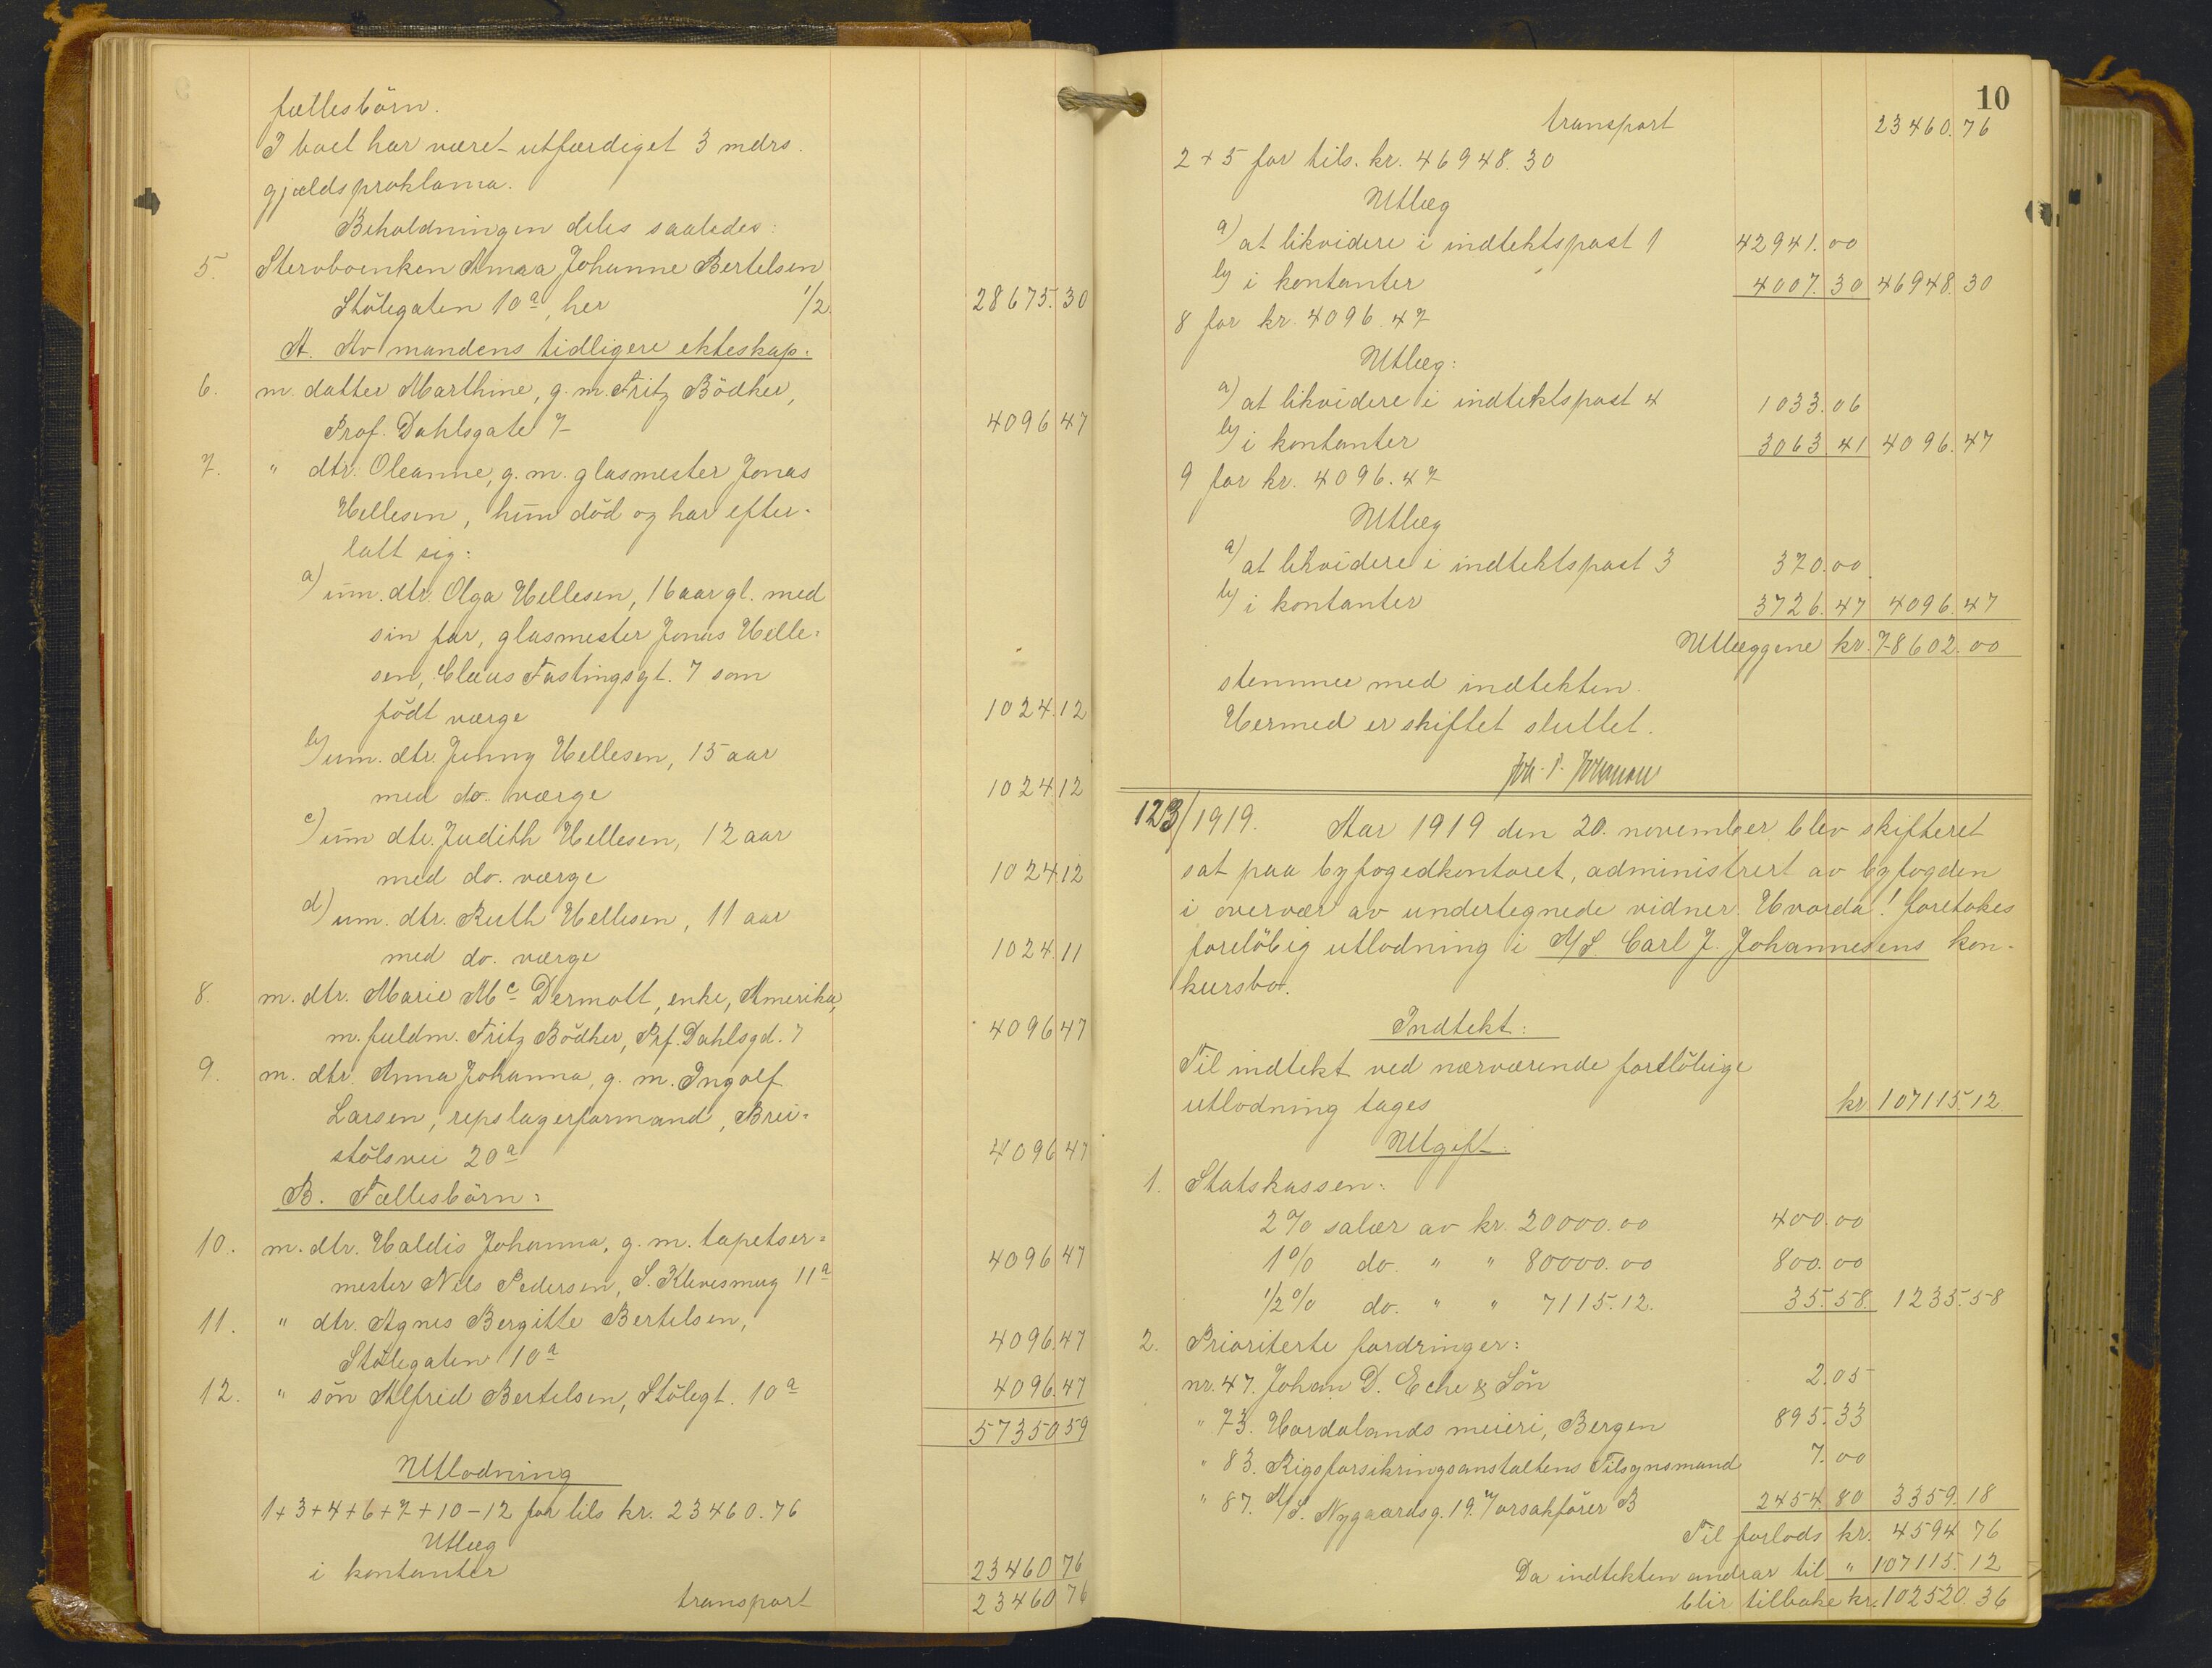 fællesbörn.
I boet har været utfærdiget 3 mdrs.
gjældsproklama.
Beholdningen deles saaledes:
5. Stervboenken Anna Johanne Bertelsen
Stölegaten 10a, her 1/2. 28675.30
A. Av mandens tidligere ekteskap.
6. m. datter Marthine, g. m. Fritz Bödker,
Prof. Dahlsgate 7 4096 47
7. " dtr. Oleanne, g. m. glasmester Jonas
Hellesen, hun död og har efter-
latt sig:
a) um. dtr. Olga Hellesen, 16 aar gl. med
sin far, glasmester Jonas Helle-
sen, Claus Fastingsgt. 7 som
födt værge 1024.12
b) um. dtr. Jenny Hellesen, 15 aar
med do. værge 1024.12
c) um dtr. Judith Hellesen, 12 aar
med do. værge 1024.12
d) um. dtr. Ruth Hellesen, 11 aar
med do. værge 1024.11
8. m. dtr. Marie Mc Dermott, enke, Amerika,
m. fuldm. Fritz Bödker, Prf. Dahlsgd. 7 4096 47
9. m. dtr. Anna Johanna, g. m. Ingolf
Larsen, repslagerformand, Brei-
stölsvei 20a 4096 47
B. Fællesbörn:
10. m. dtr. Haldis Johanna, g. m. tapetser-
mester Nils Pedersen, S. Klevesmug 11a 4096 47
11. " dtr. Agnes Bergitte Bertelsen,
Stölegaten 10a 4096.47
12. " sön Alfred Bertelsen, Stölegt. 10a 4096.47
57350 59
Utlodning
1+3+4+6+7+10-12 for tils kr. 23460.76
Utlæg
i kontanter 23460 76
transport 23460 76
10
transport 23460.76
2+5 for tils. kr. 46948.30
Utlæg
a) at likvidere i indtektspost 1 42941.00
b) i kontanter 4007.30 46948.30
8 for kr. 4096.47
Utlæg:
a) at likvidere i indtektspost 4 1033.06
b) i kontanter 3063 41 4096.47
9 for kr. 4096.47
Utlæg
a) at likvidere i indtektspost 3 370.00
b) i kontanter 3726.47 4096.47
Utlæggene kr. 78602.00
stemmer med indtekten.
Hermed er skiftet sluttet.
123/1919. Aar 1919 den 20. november blev skifteret
sat paa byfogedkontoret, administrert av byfogden
i overvær av undertegnede vidner. Hvorda! foretokes
foreløbig utlodning i A/S. Carl J. Johannesens kon-
kursbo.
Indtekt:
Til indtekt ved nærværende forelöbige
utlodning tages kr 107115.12
Utgift:
1. Statskassen:
2% salær av kr. 20000.00 400.00
1% do. " " 80000.00 800.00
1/2% do. " " 7115.12. 35.58. 1235.58
2. Prioriterte fordringer:
nr. 47. Johan D. Eche & Sön 2.05
" 73. Hordalands meieri, Bergen 895.33
" 83. Rigsforsikringsanstaltens Tilsynsmand 7.00
" 87. A/S. Nygaardsg. 19. v/orsakförer B 2454.80 3359.18
Til forlods kr. 4594 76
Da indtekten andrar til " 107115.12
blir tilbake kr. 102520.36